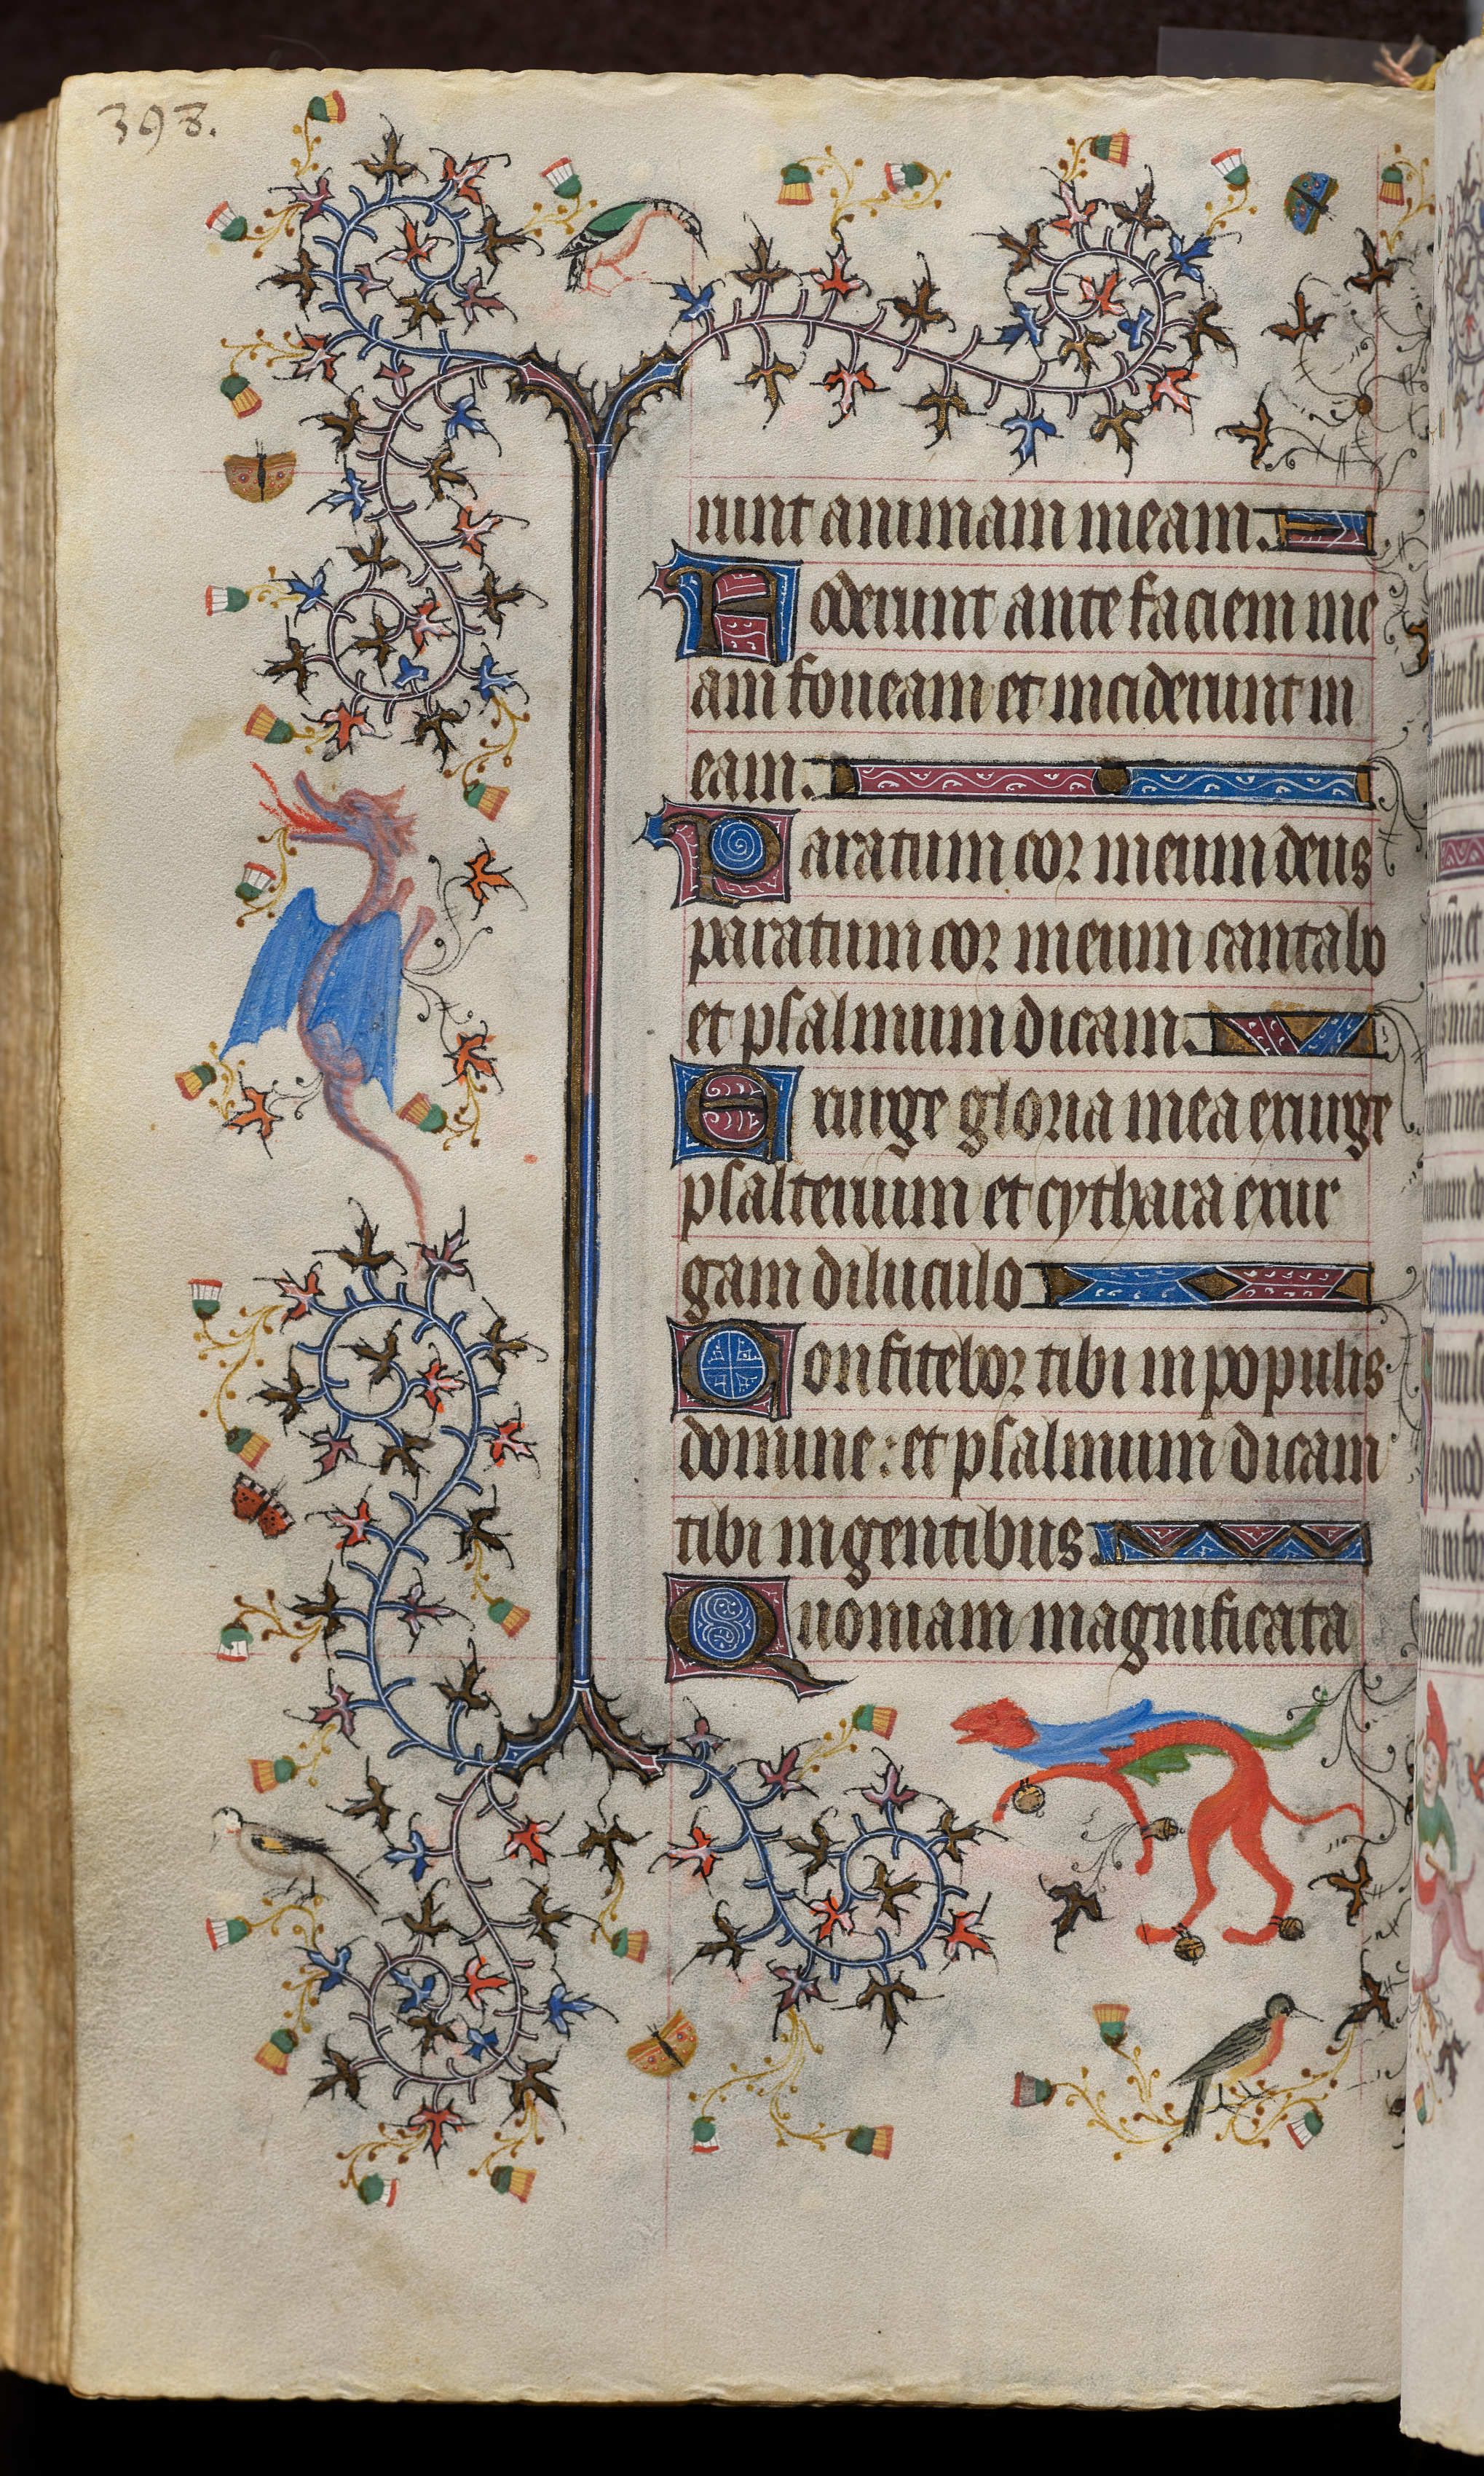 393.
runt animam meam.
Foderunt ante faciem me
am foueam et inciderunt in
eam.
Paratum cor meum deus
paratum cor meum cantabo
et psalmum dicam.
Exurge gloria mea exurge
psalterium et cythara exur
gam diluculo
Confitebor tibi in populis
domine: et psalmum dicam
tibi in gentibus.
Quoniam magnificata